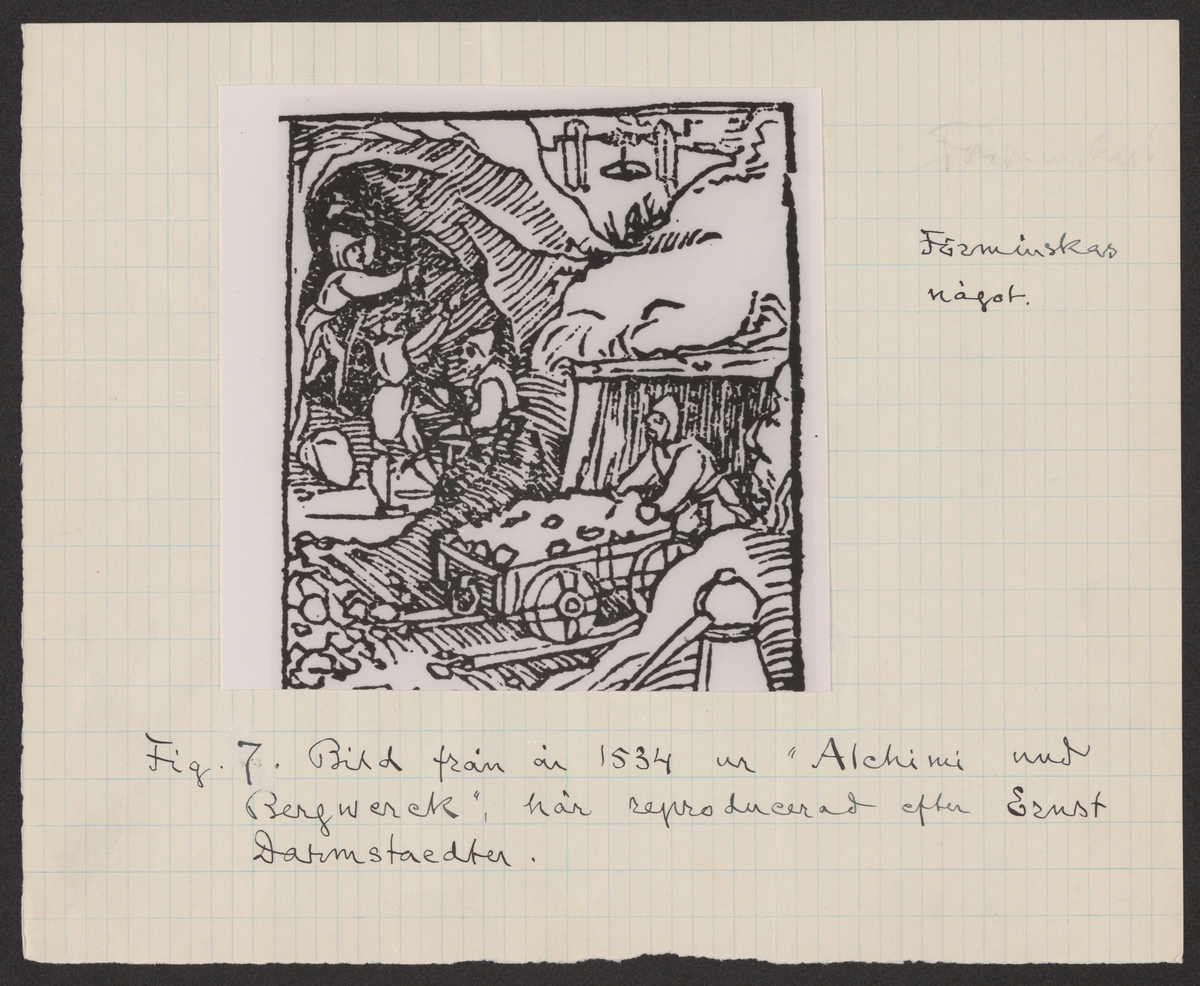 Förminskas
Förminskas
något.
Fig. 7. Bild från år 1534 ur "Alchimi und
Bergwerck", här reproducerad efter Ernst
Darmstaedter.